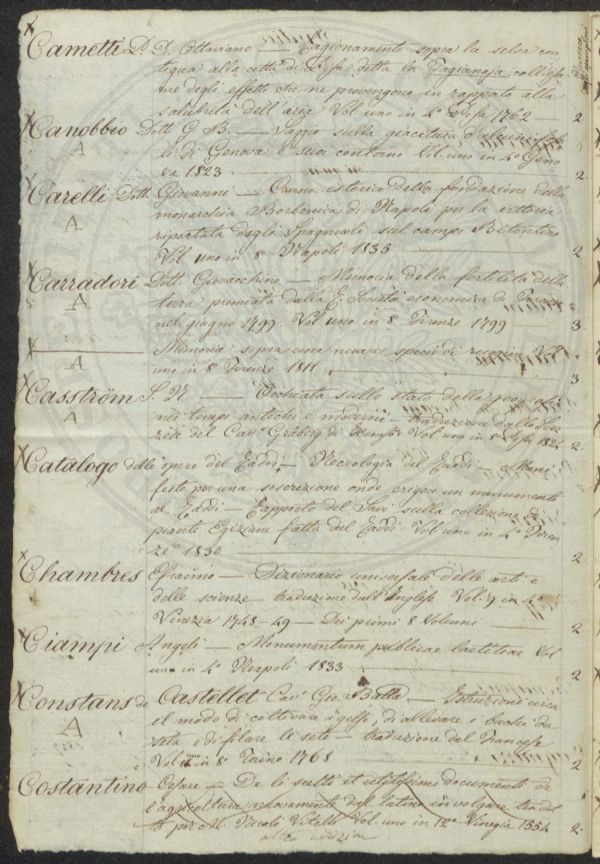 Cametti D. D. Ottaviano — Ragionamento sopra la selva con
tigua alla città di Pisa detta la Tagianaja coll'esa
me degli effetti che ne provengono in rapporto alla
salubrità dell'aria Vol. uno in 4° Pisa 1762 — 2
Canobbio Dott. G. B. — Saggio sulla giacitura d'alcuni fossi
A li di Genova e suoi contorni Vol. uno in 4° Geno
va 1823 2
Carelli Dott. Giovanni — Canno istorico della fondazione della
A monarchia Borbonica di Napoli per la vittoria
riportata dagli Spagnuoli sul campo Bitontino
Vol uno in 8 Napoli 1836 2
Carradori Dott. Giovacchino — Memoria della fertilità della
A terra premiata dalla E. Società economica di
nel giugno 1799 Vol uno in 8 Firenze 1799 — 3
Memoria sopra una nuova specie di Vol
A uno in 8 Firenze 1811 3
Casström S. N. — Occhiata sullo stato della geog. ne
A nei tempi antichi e moderni — traduzione dallo Sve
zese del Cav. Gråberg di Vol uno in 8 Pisa 1824 2
Catalogo delle opere del Raddi — Necrologia del Raddi — Mani
festo per una soscrizione onde erigere un monumento
al Raddi — Rapporto del Savi sulla collezione di
piante Egiziane fatta dal Raddi Vol uno in 4° Firen
ze 1830 2
Chambres Efraimo — Dizionario universale delle arti e
delle scienze — traduzione dall'Inglese Vol 9 in 4°
Venezia 1748-49 — Dei primi 8 Volumi 2
Ciampi Angeli — Monumentum publicae laetitiae Vol
uno in 4° Neapoli 1833 2
Constans de Castellet Cav. Gio. Batta — Istruzione circa
A el modo di coltivare i gelsi, di allevare i bachi da
seta e di filare le sete — traduzione dal Francese
Vol in 8° Torino 1768 2
Costantino Cesare — De li scelti et utilissimi documenti de
l'agricoltura nuovamente dal latino in volgare tradot
to per M. Nicolò Vitelli Vol uno in 12° Venegia 1554 2
altra edizion